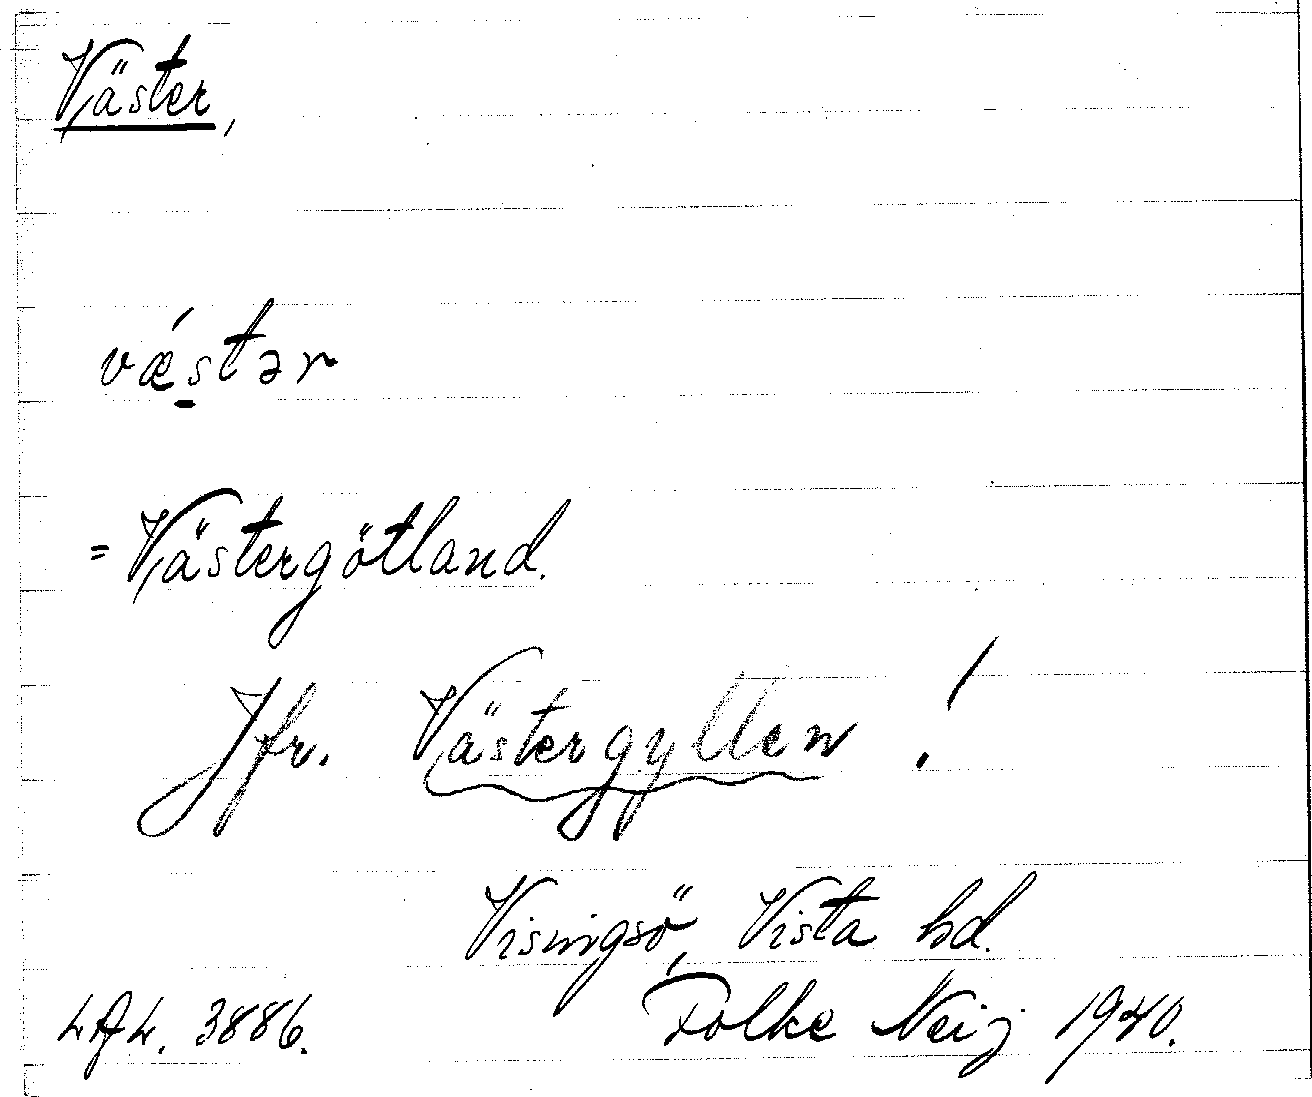 Väster,
væ´s̱tər
= Västergötland.
Jfr. Västergyllen !
Visingsö, Vista hd.
LAL. 3886. Folke Neij 1940.